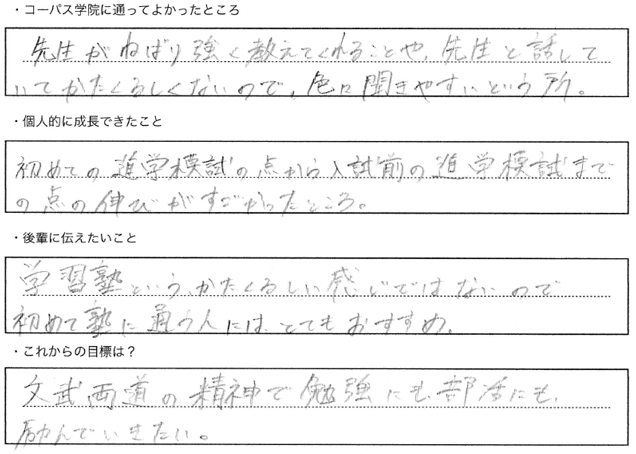 ・コーパス学院に通ってよかったところ
先生がねばり強く教えてくれることや、先生と話して
いてかたくるしくないので、色々聞きやすいという所。
・個人的に成長できたこと
初めての進学模試の点から入試前の進学模試まで
の点の伸びがすごかったところ。
・後輩に伝えたいこと
学習塾という、かたくるしい感じではないので
初めて塾に通う人には、とてもおすすめ。
・これからの目標は？
文武両道の精神で勉強にも、部活にも、
励んでいきたい。